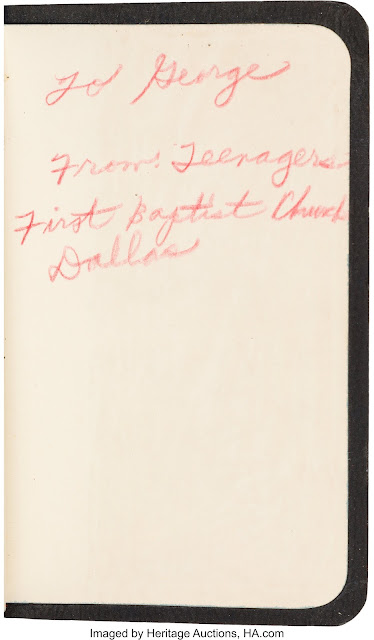 To George
From: Teenagers
First Baptist Church
Dallas
Imaged by Heritage Auctions, HA.com